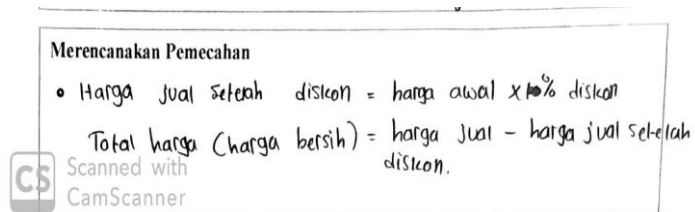 Merencanakan Pemecahan
• Harga jual setelah diskon = harga awal x % diskon
Total harga (harga bersih) = harga jual - harga jual setelah
diskon.
CS Scanned with
CamScanner